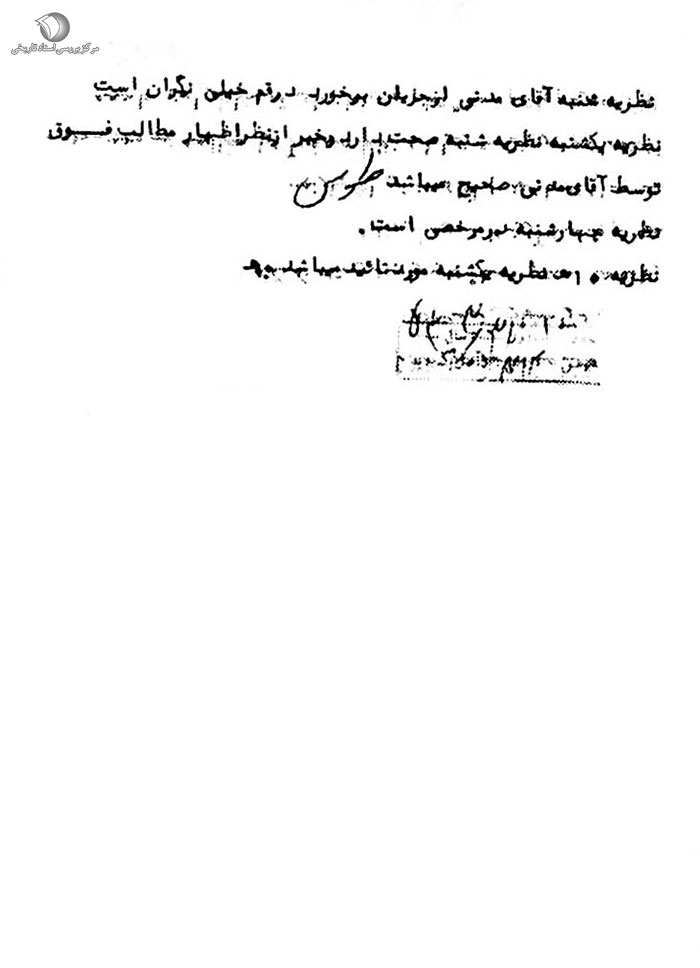 مرکز بررسی اسناد تاریخی
نظریه شنبه آقای مدنی از جریان برخورد در قم خیلی نگران است
نظریه یکشنبه نظریه شنبه صحت دارد و خبر از نظر اظهار مطالب فوق
توسط آقای مدنی صحیح میباشد
نظریه چهارشنبه در مرخصی است.
نظریه ۱۰ هـ نظریه یکشنبه مورد تائید میباشد